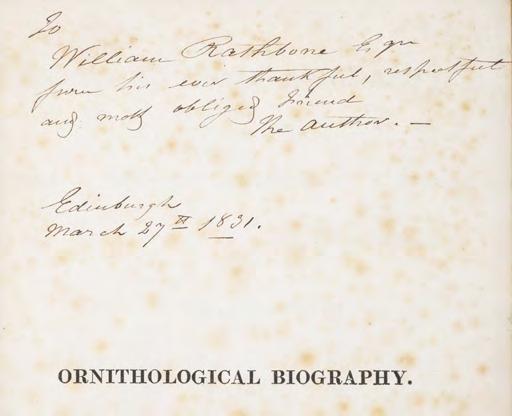 To
William Rathbone Esqre
from his ever thankful, respectful
and most obliged friend
The author. —
Edinburgh
March 27th 1831.
ORNITHOLOGICAL BIOGRAPHY.